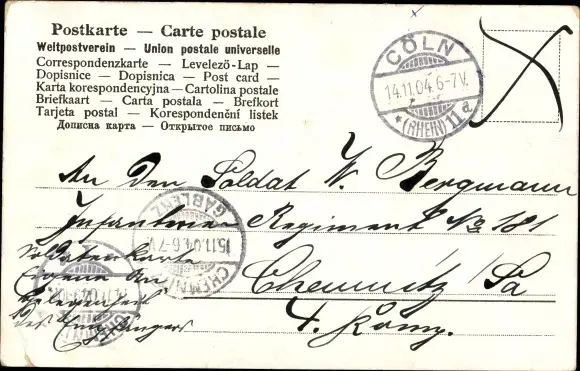 Postkarte — Carte postale
Weltpostverein — Union postale universelle
Correspondenzkarte — Levelező-Lap —
Dopisnice — Dopisnica — Post card —
Karta korespondencyjna — Cartolina postale
Briefkaart — Carta postala — Brefkort
Tarjeta postal — Korespondenční listek
Дописна карта — Открытое письмо
CÖLN
14.11.04. 6-7V.
*(RHEIN) 11a
An den Soldat W. Bergmann
Infanterie Regiment No 181
Chemnitz / Sa
4. Komp.
Soldatenkarte
Eigene An
gelegenheit
des Empfängers
GABLENZ
15.11.04. 6-7 V.
CHEMNI